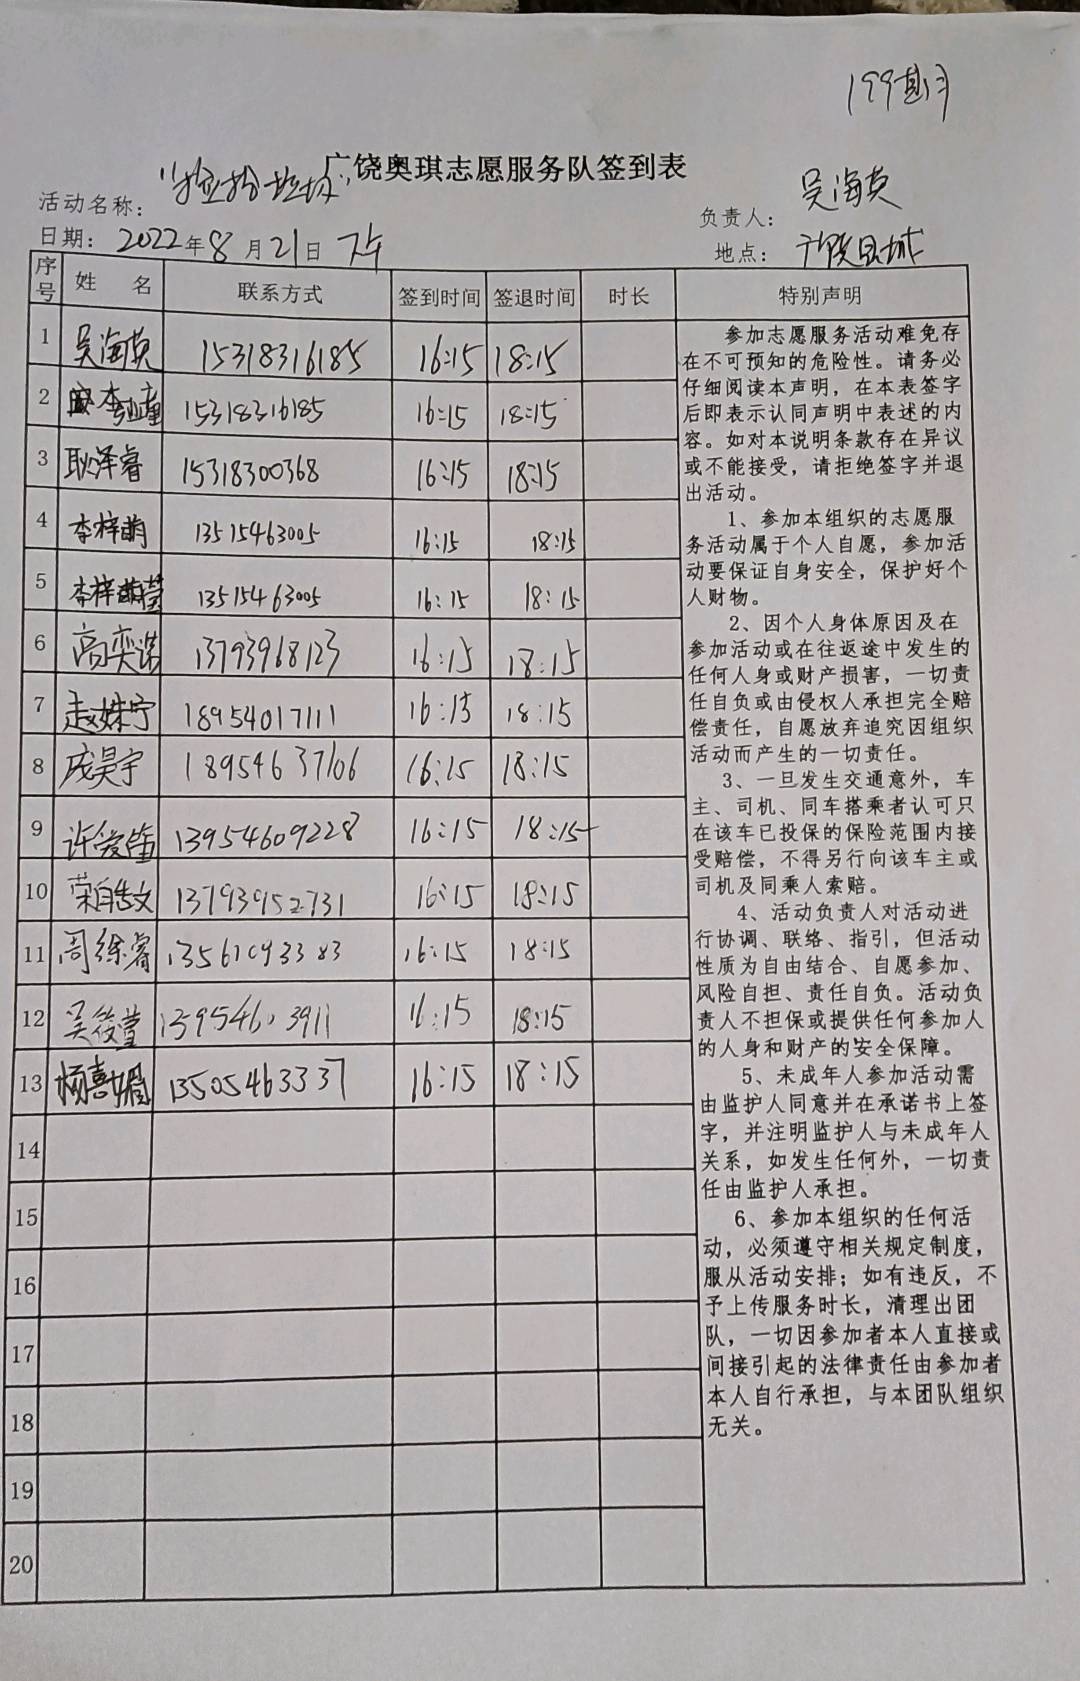 199期
广饶奥琪志愿服务队签到表
活动名称： "捡拾垃圾"
负责人： 吴海英
日期： 2022年8月21日 下午
地点： 广饶县城
序号 姓 名 联系方式 签到时间 签退时间 时长 特别声明
1 吴海英 15318316185 16:15 18:15
2 15318316185 16:15 18:15
3 耿泽睿 15318300368 16:15 18:15
4 李梓萌 13515463005 16:15 18:15
5 李梓萱 13515463005 16:15 18:15
6 高奕诺 13793968123 16:15 18:15
7 赵姝宁 18954017111 16:15 18:15
8 成昊宇 18954637106 16:15 18:15
9 13954609228 16:15 18:15
10 13793952731 16:15 18:15
11 周绦睿 13561093383 16:15 18:15
12 吴筱萱 16:15 18:15
13 杨喜媚 13505463337 16:15 18:15
14
15
16
17
18
19
20
参加志愿服务活动难免存
在不可预知的危险性。请务必
仔细阅读本声明，在本表签字
后即表示认同声明中表述的内
容。如对本说明条款存在异议
或不能接受，请拒绝签字并退
出活动。
1、参加本组织的志愿服
务活动属于个人自愿，参加活
动要保证自身安全，保护好个
人财物。
2、因个人身体原因及在
参加活动或在往返途中发生的
任何人身或财产损害，一切责
任自负或由侵权人承担完全赔
偿责任，自愿放弃追究因组织
活动而产生的一切责任。
3、一旦发生交通意外，车
主、司机、同车搭乘者认可只
在该车已投保的保险范围内接
受赔偿，不得另行向该车主或
司机及同乘人索赔。
4、活动负责人对活动进
行协调、联络、指引，但活动
性质为自由结合、自愿参加、
风险自担、责任自负。活动负
责人不担保或提供任何参加人
的人身和财产的安全保障。
5、未成年人参加活动需
由监护人同意并在承诺书上签
字，并注明监护人与未成年人
关系，如发生任何外，一切责
任由监护人承担。
6、参加本组织的任何活
动，必须遵守相关规定制度，
服从活动安排；如有违反，不
予上传服务时长，清理出团
队，一切因参加者本人直接或
间接引起的法律责任由参加者
本人自行承担，与本团队组织
无关。